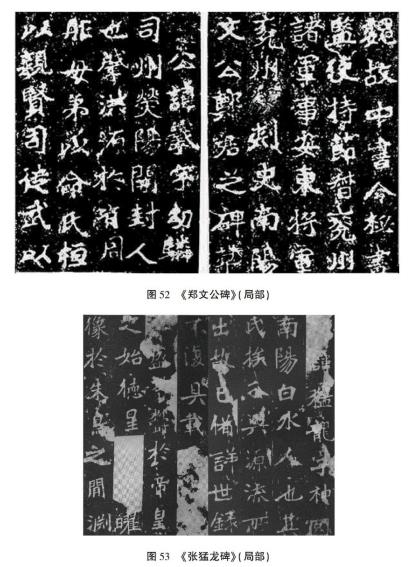 魏故中書令秘書
監使持節督兗州
諸軍事安東將軍
兗州刺史南陽
文公鄭君之碑草
公諱羲字幼驎
司州熒陽開封人
也肇洪源於有周
胙母弟以命氏桓
以親賢司徒武以
图 52 《郑文公碑》(局部)
諱猛龍字神冏
南陽白水人也其
氏族分興源流所
出故已備詳世録
不復具載
盛於帝皇
之始德星曜
像於朱鳥之間淵
图 53 《张猛龙碑》(局部)